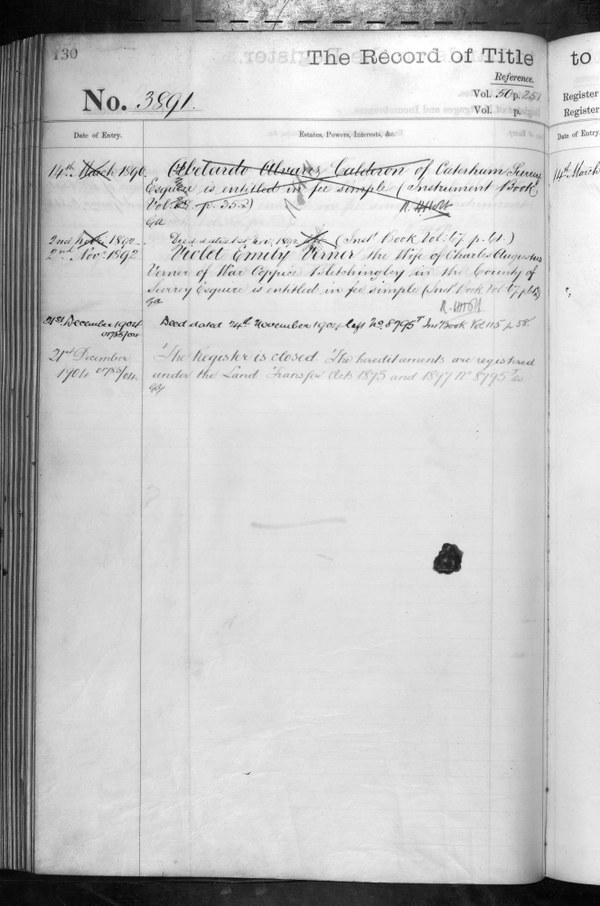 130
The Record of Title
to
Reference.
No. 3891.
Vol. 50 p. 251
Vol. p.
Register
Register
Date of Entry.
Estates, Powers, Interests, &c.
Date of Entry.
14th March 1890.
Abelardo Alvarez Calderon of Caterham Surrey
14th March
Esquire is entitled in fee simple (Instrument Book
Vol: p. 352)
R. Holt
2nd Nov. 1892
Deed dated 1892 (Inst Book Vol: 67 p. 61.)
2nd Nov: 1892
Violet Emily Verner the Wife of Charles Augustus
Verner of War Coppice Bletchingley in the County of
Surrey Esquire is entitled in fee simple (Inst Book Vol 67 p 62)
R. Holt
21st December 1904
Deed dated 24th November 1904 left No. 8795 T Inst Book Vol 115 p 58
21st December
The Register is closed The hereditaments are registered
1904
under the Land Transfer Acts 1875 and 1897 No 8795